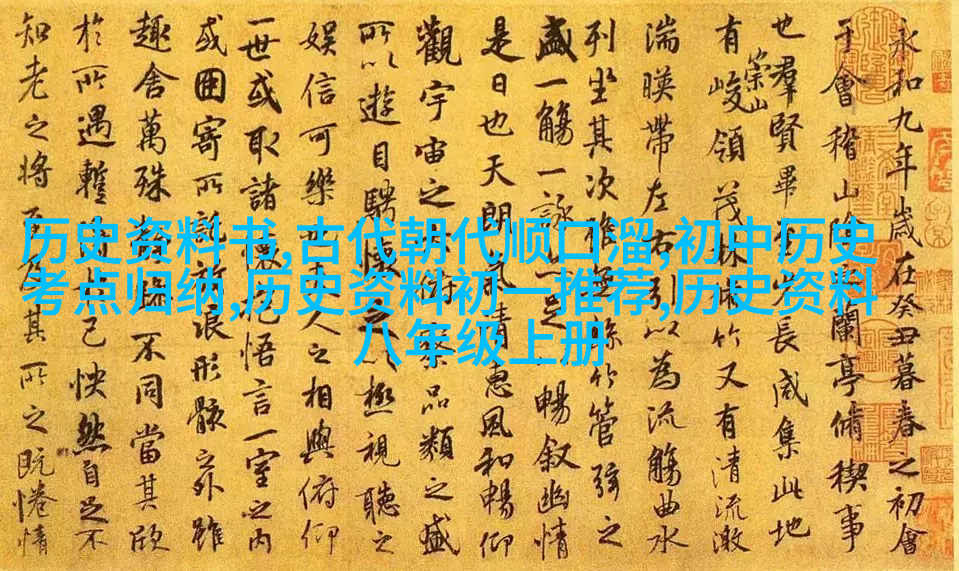 历史资料书,古代朝代顺口溜,初中历史
考点归纳,历史资料初一推荐,历史资料
八年级上册
永和九年歲在癸丑暮春之初會
于會稽山陰之蘭亭脩稧事
也羣賢畢至少長咸集此地
有崇山峻領茂林脩竹又有清流激
湍暎帶左右引以為流觴曲水
列坐其次雖無絲竹管弦之
盛一觴一詠亦足以暢叙幽情
是日也天朗氣清惠風和暢仰
觀宇宙之大俯察品類之盛
所以遊目騁懷足以極視聽之
娛信可樂也夫人之相與俯仰
一世或取諸懷抱悟言一室之內
或因寄所託放浪形骸之外雖
趣舍萬殊靜躁不同當其欣
於所遇蹔得於己怏然自足不
知老之將至及其所之既惓情